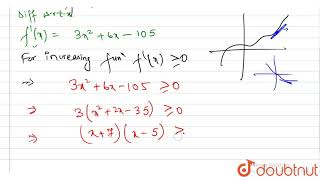 f'(x) = 3x² + 6x - 105
For increasing funⁿ f'(x) ≥ 0
⇒ 3x² + 6x - 105 ≥ 0
⇒ 3(x² + 2x - 35) ≥ 0
⇒ (x+7)(x-5) ≥
doubtnut